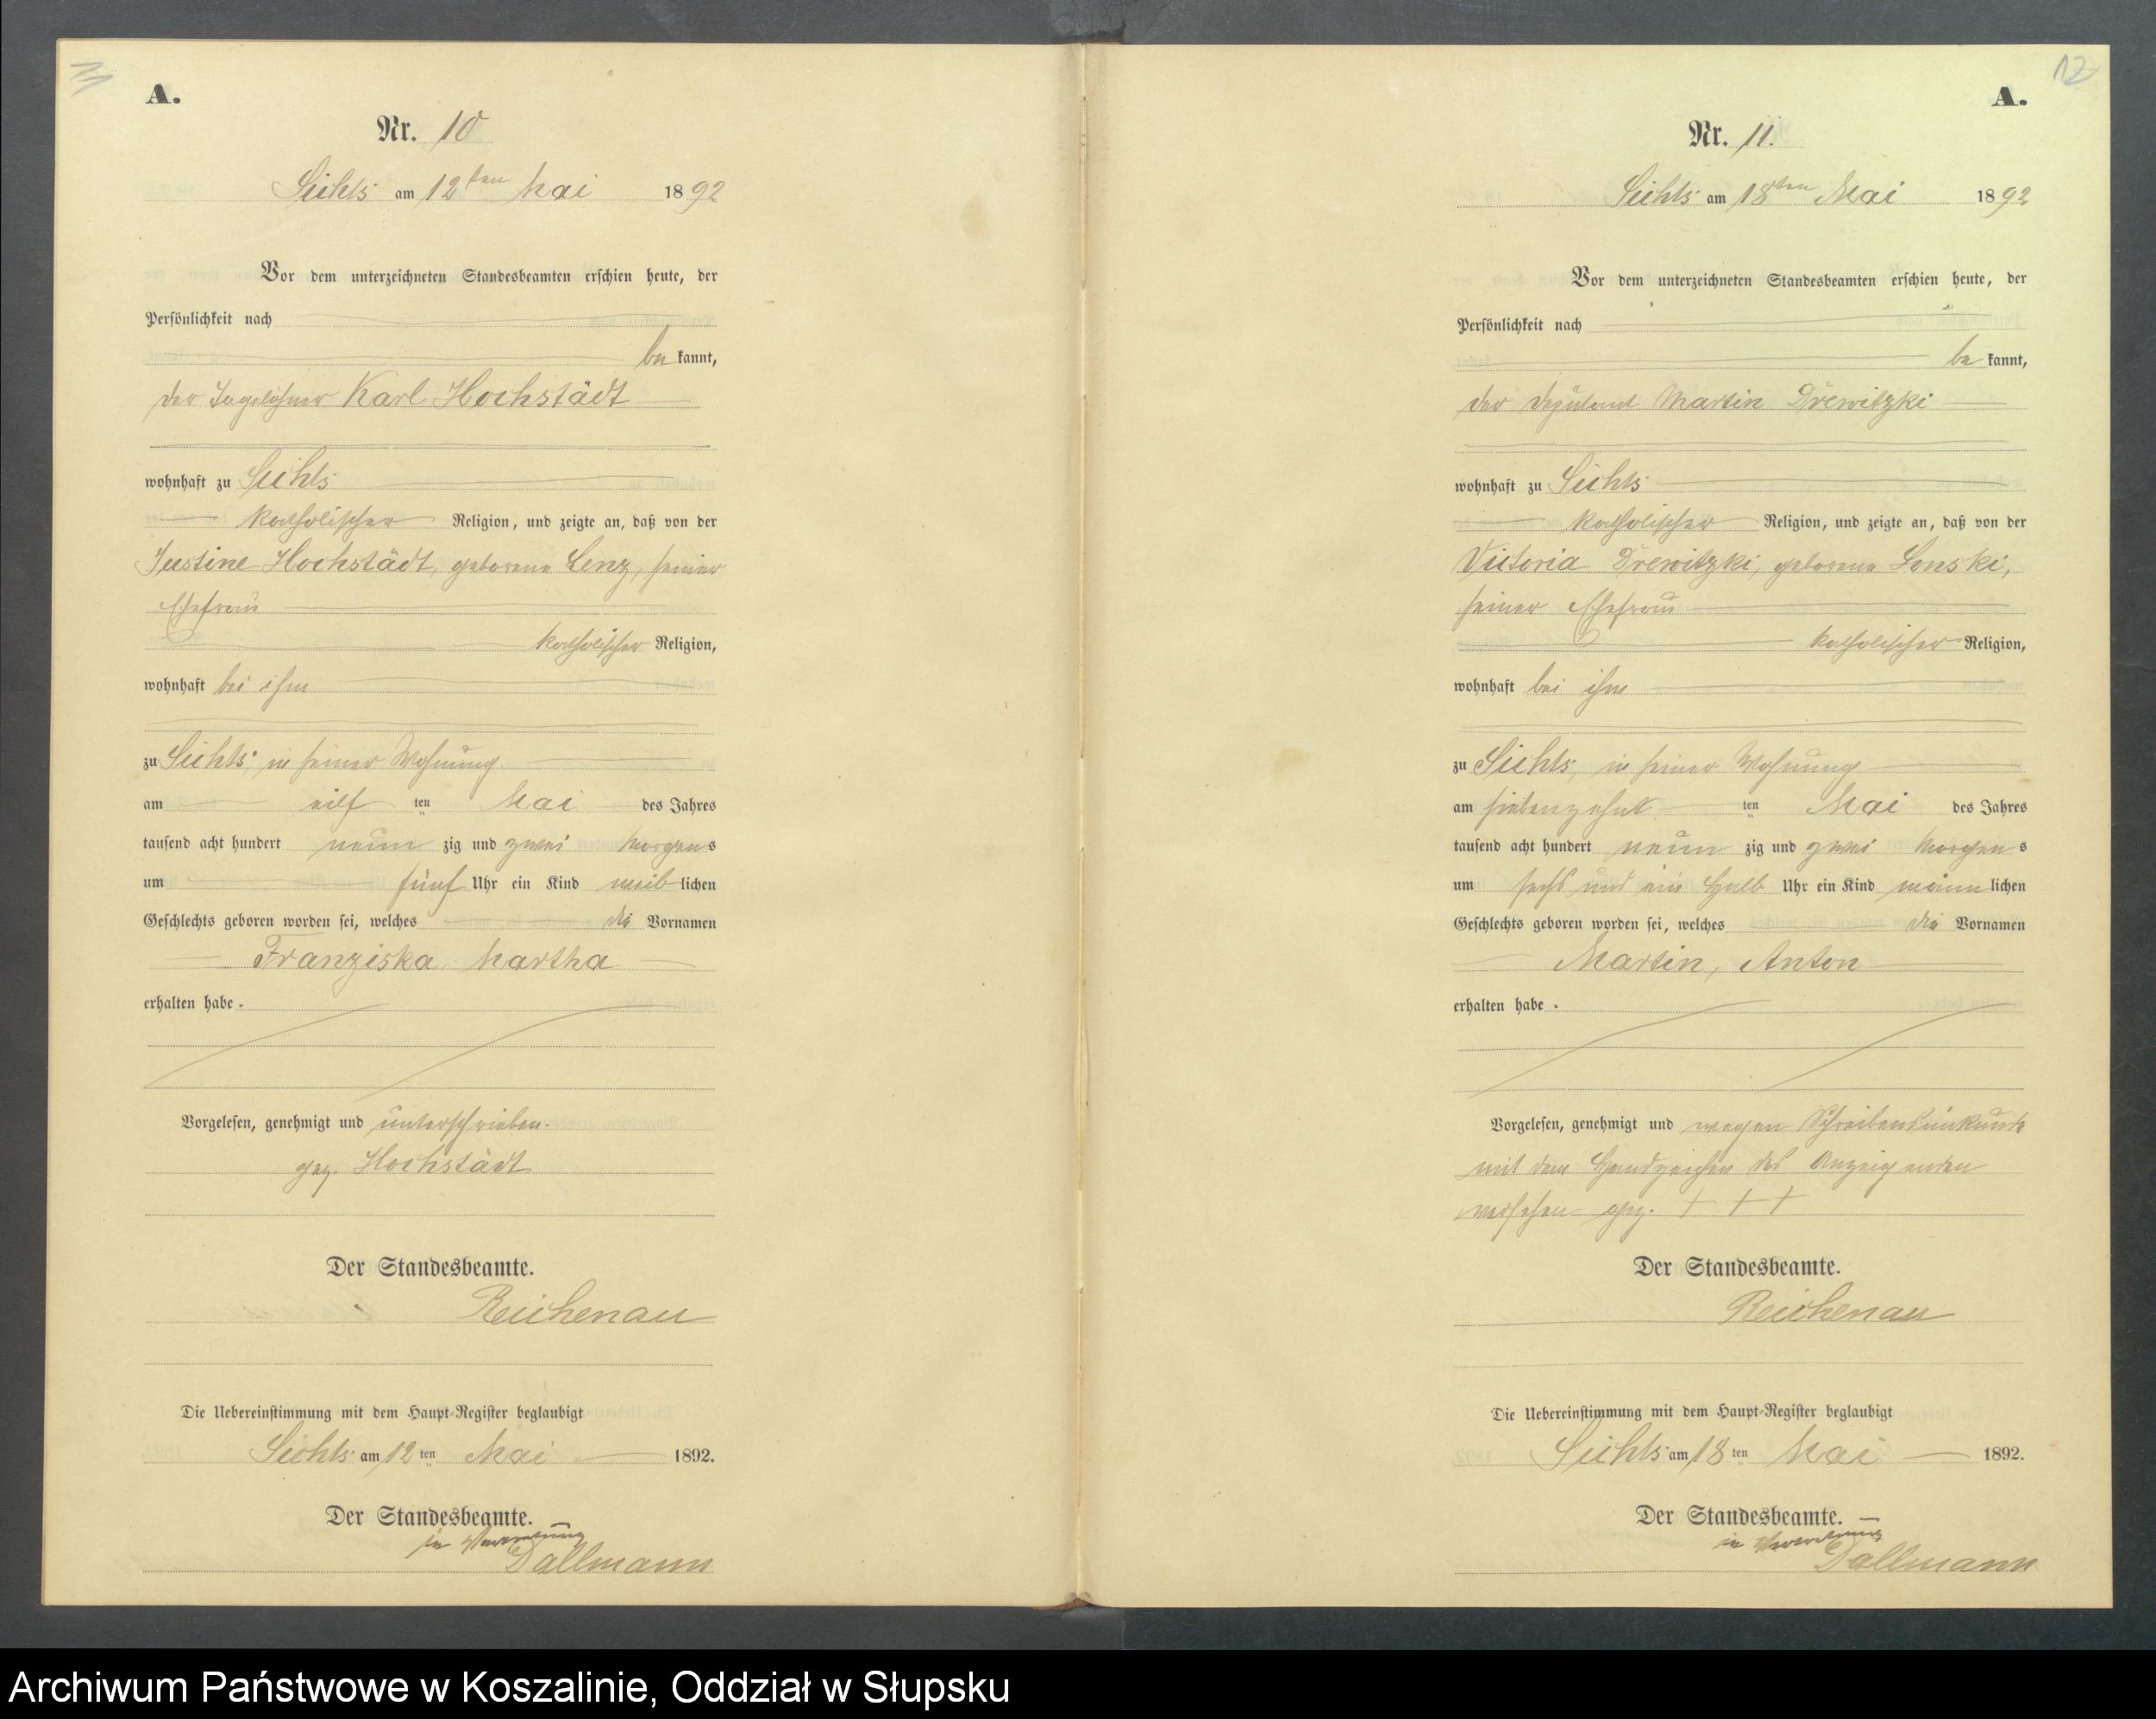 A.
Nr. 10
Sichts am 12ten Mai 1892
Vor dem unterzeichneten Standesbeamten erschien heute, der
Persönlichkeit nach
be kannt,
der Tagelöhner Karl Hochstädt
wohnhaft zu Sichts
katholischer Religion, und zeigte an, daß von der
Justine Hochstädt, geborene Lenz, seiner
Ehefrau
katholischer Religion,
wohnhaft bei ihm
zu Sichts, in seiner Wohnung
am eilf ten Mai des Jahres
tausend acht hundert neun zig und zwei Morgens
um fünf Uhr ein Kind weib lichen
Geschlechts geboren worden sei, welches die Vornamen
Franziska Martha
erhalten habe.
Vorgelesen, genehmigt und unterschrieben.
gez. Hochstädt
Der Standesbeamte.
Reichenau
Die Uebereinstimmung mit dem Haupt-Register beglaubigt
Sichts am 12 ten Mai 1892.
Der Standesbeamte.
in Vertretung
Dallmann
12
A.
Nr. 11.
Sichts am 18ten Mai 1892
Vor dem unterzeichneten Standesbeamten erschien heute, der
Persönlichkeit nach
be kannt,
der Deputant Martin Drewitzki
wohnhaft zu Sichts
katholischer Religion, und zeigte an, daß von der
Victoria Drewitzki, geborene Lonski,
seiner Ehefrau
katholischer Religion,
wohnhaft bei ihm
zu Sichts, in seiner Wohnung
am siebenzehnt ten Mai des Jahres
tausend acht hundert neun zig und zwei Morgens
um sechs und ein halb Uhr ein Kind männ lichen
Geschlechts geboren worden sei, welches die Vornamen
Martin, Anton
erhalten habe.
Vorgelesen, genehmigt und wegen Schreibensunkunde
mit dem Handzeichen des Anzeigenden
versehen gez. + + +
Der Standesbeamte.
Reichenau
Die Uebereinstimmung mit dem Haupt-Register beglaubigt
Sichts am 18 ten Mai 1892.
Der Standesbeamte.
in Vertretung
Dallmann
Archiwum Państwowe w Koszalinie, Oddział w Słupsku